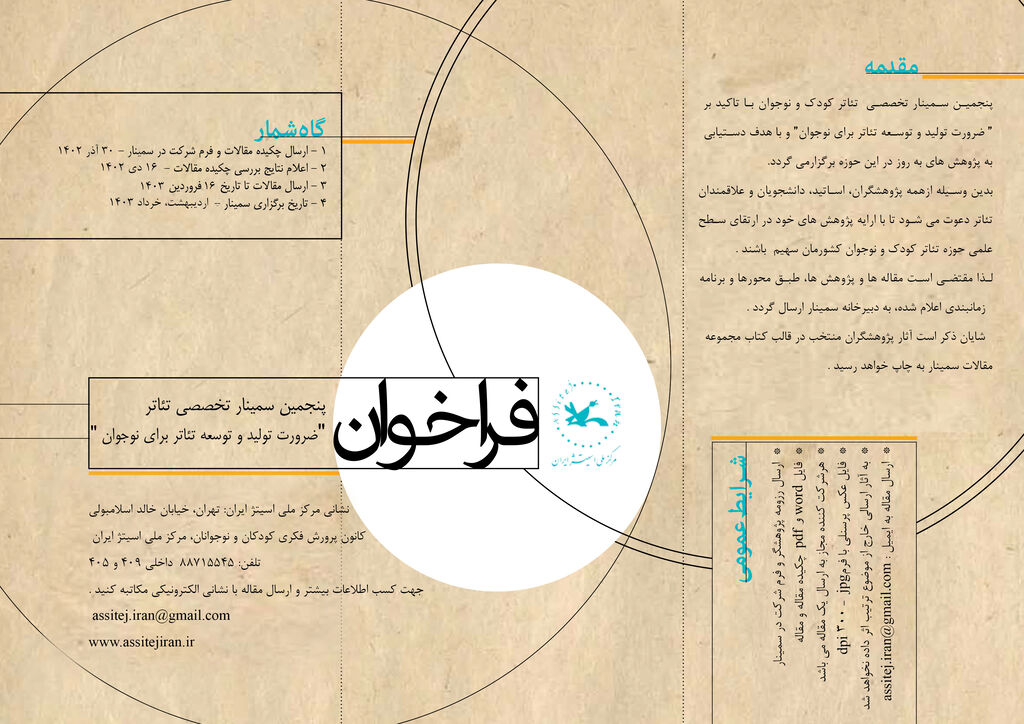 مقدمه
پنجمین سمینار تخصصی تئاتر کودک و نوجوان با تاکید بر
" ضرورت تولید و توسعه تئاتر برای نوجوان" و با هدف دستیابی
به پژوهش های به روز در این حوزه برگزارمی گردد.
بدین وسیله ازهمه پژوهشگران، اساتید، دانشجویان و علاقمندان
تئاتر دعوت می شود تا با ارایه پژوهش های خود در ارتقای سطح
علمی حوزه تئاتر کودک و نوجوان کشورمان سهیم باشند .
لذا مقتضی است مقاله ها و پژوهش ها، طبق محورها و برنامه
زمانبندی اعلام شده، به دبیرخانه سمینار ارسال گردد .
شایان ذکر است آثار پژوهشگران منتخب در قالب کتاب مجموعه
مقالات سمینار به چاپ خواهد رسید .
شرایط عمومی
* ارسال رزومه پژوهشگر و فرم شرکت در سمینار
* فایل word و pdf چکیده مقاله و مقاله
* هرشرکت کننده مجاز به ارسال یک مقاله می باشد
* فایل عکس پرسنلی با فرمjpg - ۳۰۰ dpi
* به آثار ارسالی خارج از موضوع ترتیب اثر داده نخواهد شد
* ارسال مقاله به ایمیل : assitej.iran@gmail.com
گاه‌شمار
۱ - ارسال چکیده مقالات و فرم شرکت در سمینار - ۳۰ آذر ۱۴۰۲
۲ - اعلام نتایج بررسی چکیده مقالات - ۱۶ دی ۱۴۰۲
۳ - ارسال مقالات تا تاریخ ۱۶ فروردین ۱۴۰۳
۴ - تاریخ برگزاری سمینار - اردیبهشت، خرداد ۱۴۰۳
فراخوان
پنجمین سمینار تخصصی تئاتر
"ضرورت تولید و توسعه تئاتر برای نوجوان "
مرکز ملی اسیتژ ایران
نشانی مرکز ملی اسیتژ ایران: تهران، خیابان خالد اسلامبولی
کانون پرورش فکری کودکان و نوجوانان، مرکز ملی اسیتژ ایران
تلفن: ۸۸۷۱۵۵۴۵ داخلی ۴۰۹ و ۴۰۵
جهت کسب اطلاعات بیشتر و ارسال مقاله با نشانی الکترونیکی مکاتبه کنید .
assitej.iran@gmail.com
www.assitejiran.ir